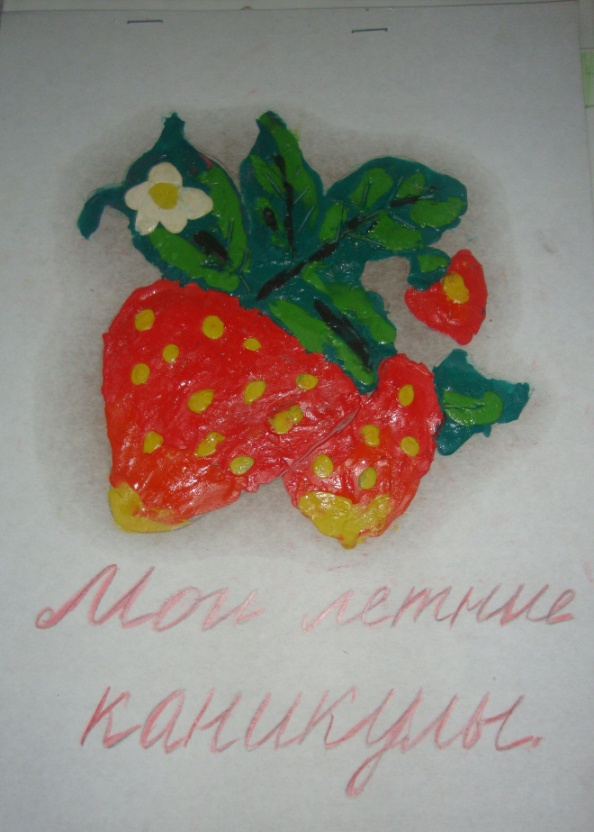 Мои летние
каникулы.